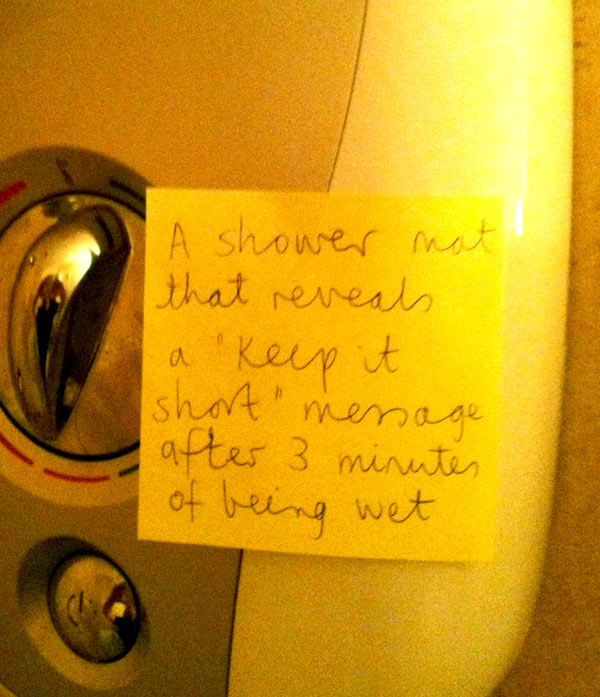 A shower mat
that reveals
a "Keep it
short" message
after 3 minutes
of being wet